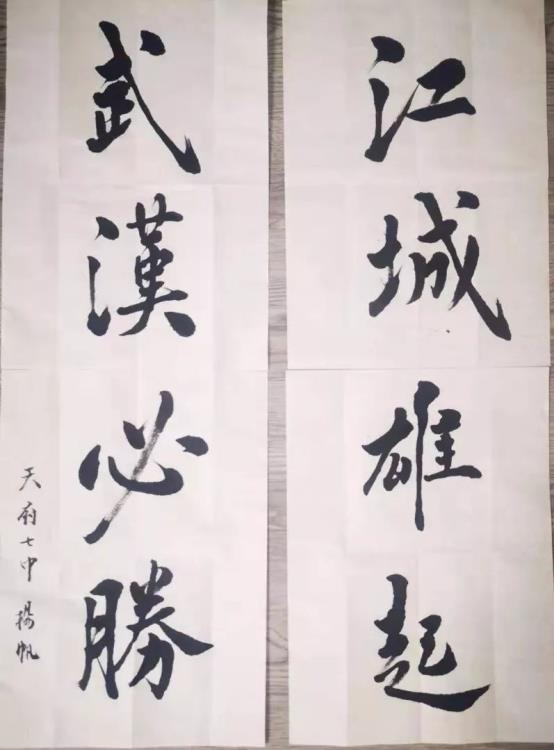 江城雄起
武漢必勝
天府七中 楊帆